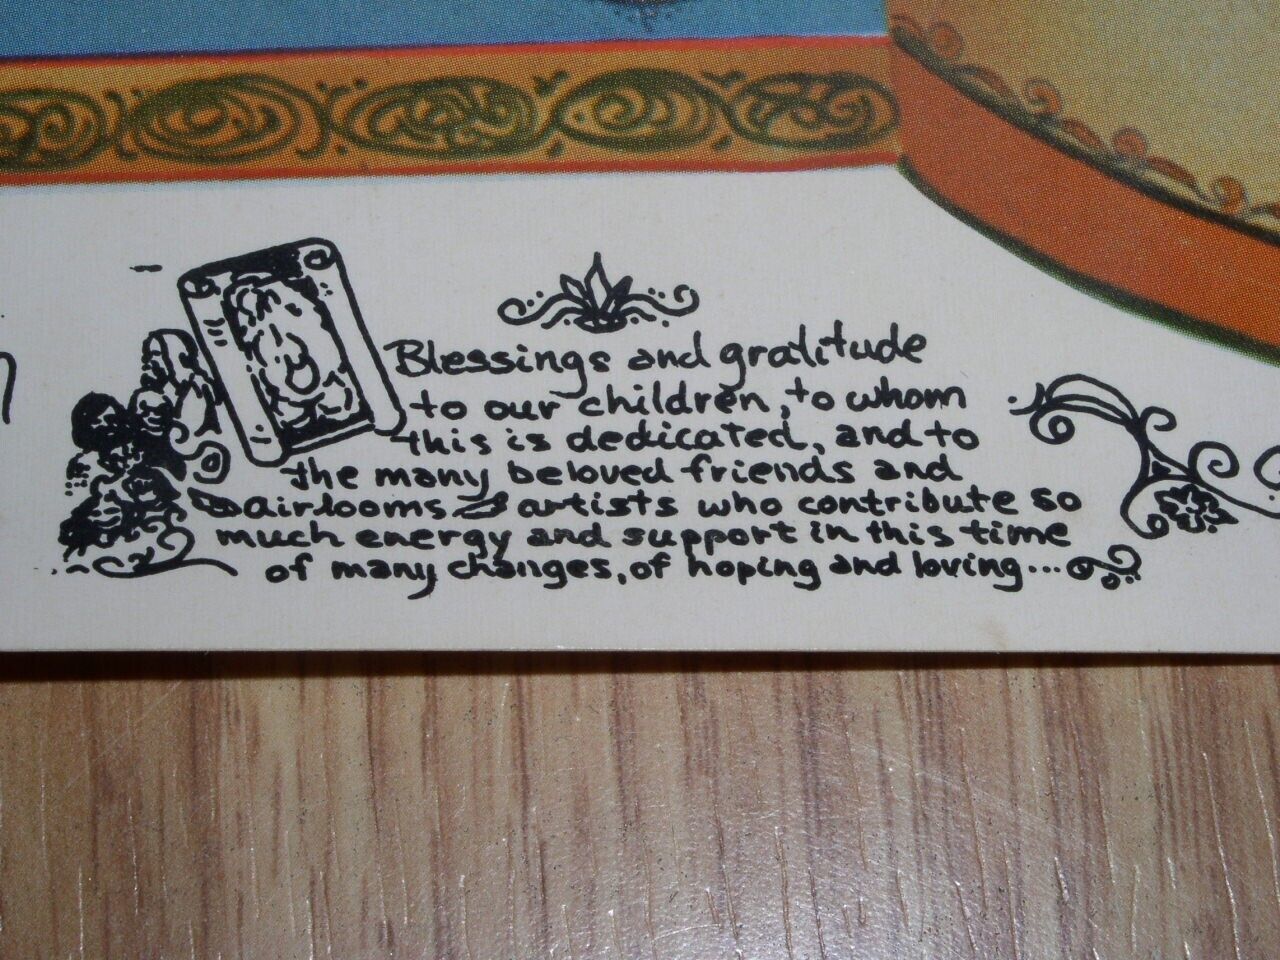 Blessings and gratitude
to our children, to whom
this is dedicated, and to
the many beloved friends and
airlooms artists who contribute so
much energy and support in this time
of many changes, of hoping and loving...